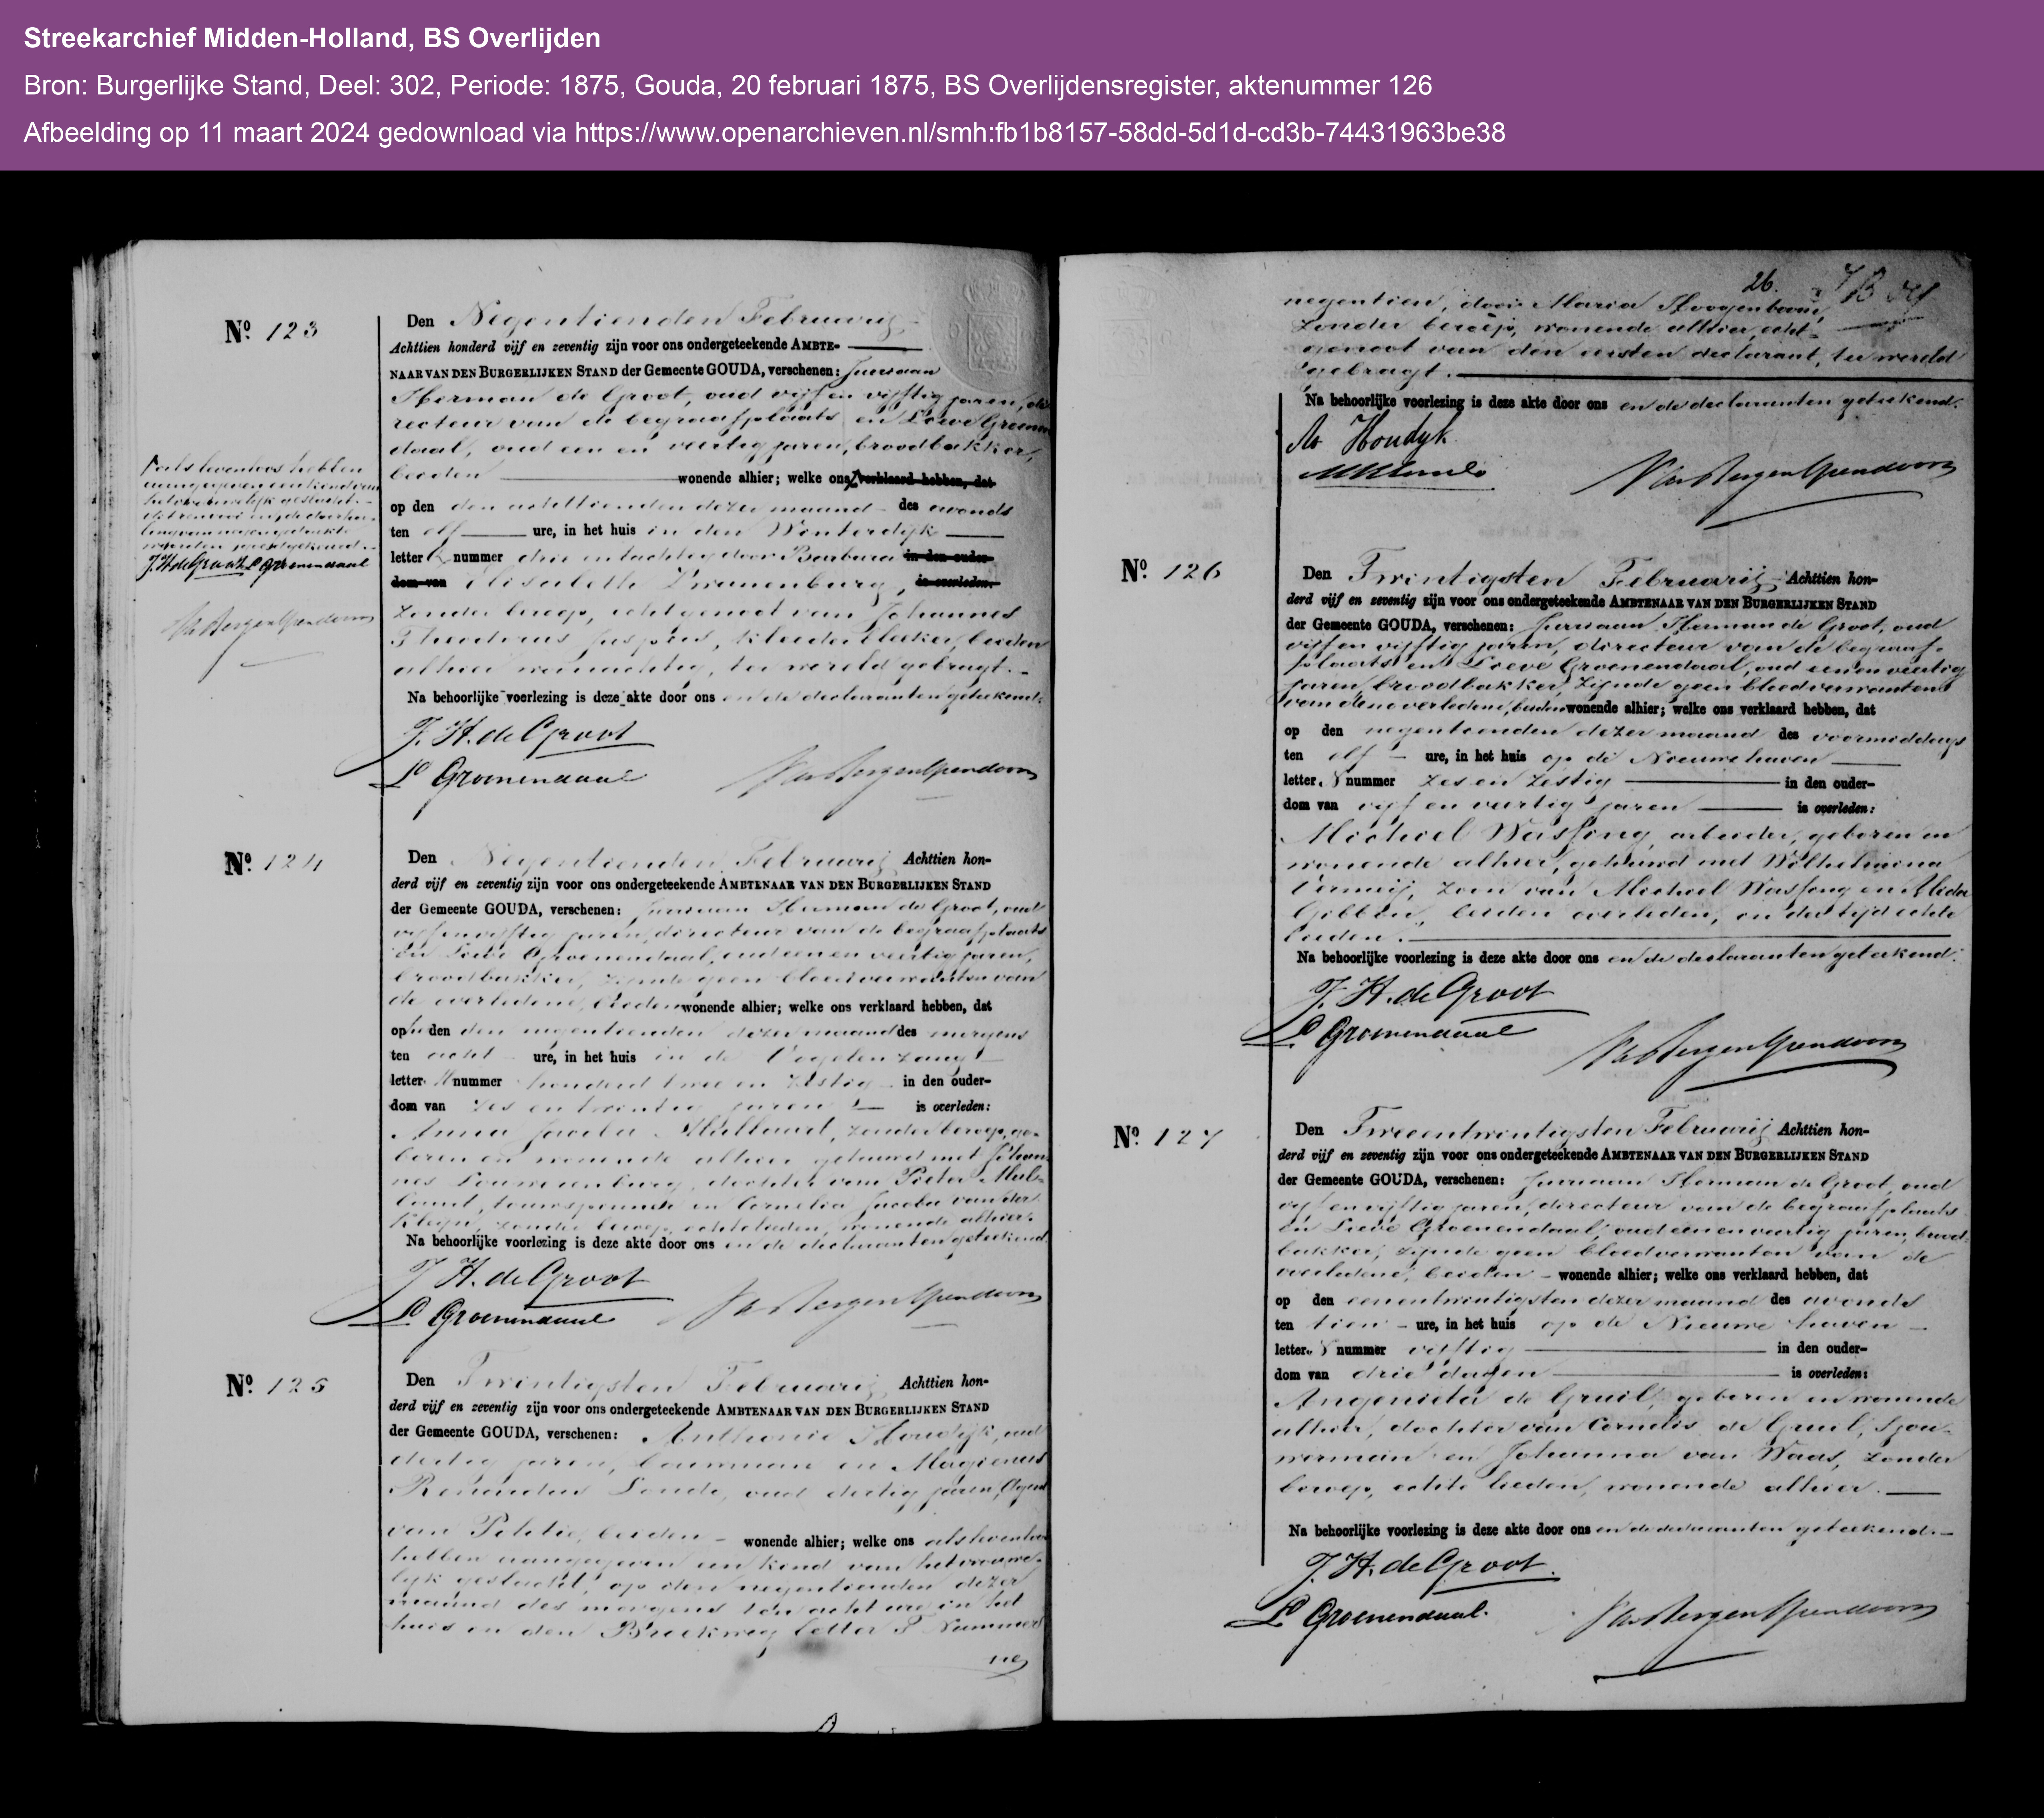 Streekarchief Midden-Holland, BS Overlijden
Bron: Burgerlijke Stand, Deel: 302, Periode: 1875, Gouda, 20 februari 1875, BS Overlijdensregister, aktenummer 126
Afbeelding op 11 maart 2024 gedownload via https://www.openarchieven.nl/smh:fb1b8157-58dd-5d1d-cd3b-74431963be38
No. 123
Den Negentienden Februarij
Achttien honderd vijf en zeventig zijn voor ons ondergeteekende AMBTE-
NAAR VAN DEN BURGERLIJKEN STAND der Gemeente GOUDA, verschenen: Juriaan
Herman de Groot, oud vijf en vijftig jaren, di
recteur van de begraafplaats en Loeve Groenen
daal, oud een en veertig jaren, broodbakker,
beiden wonende alhier; welke ons verklaard hebben, dat
op den den achttienden dezer maand des avonds
ten elf ure, in het huis in den Winterdijk
letter nummer drie en tachtig door Barbara in den ouder-
dom van Elisabeth Kranenburg, is overleden:
zonder beroep, echtgenoot van Johannes
Theodorus Jaspers, kleederbleeker, beiden
alhier woonachtig, ter wereld gebragt.
Na behoorlijke voorlezing is deze akte door ons en de declaranten geteekend.
J. H. de Groot
L Groenendaal
als levenloos hebben
aangegeven een kind van
het vrouwelijk geslacht.
J H de Groot L Groenendaal
No. 124
Den Negentienden Februarij Achttien hon-
derd vijf en zeventig zijn voor ons ondergeteekende AMBTENAAR VAN DEN BURGERLIJKEN STAND
der Gemeente GOUDA, verschenen: Juriaan Herman de Groot, oud
vijf en vijftig jaren, directeur van de begraafplaats
en Loeve Groenendaal, oud een en veertig jaren,
broodbakker, zijnde geen bloedverwanten van
de overledene, beiden wonende alhier; welke ons verklaard hebben, dat
op heden den negentienden dezer maand des morgens
ten acht ure, in het huis in de Vogelenzang
letter nummer honderd twee en zestig in den ouder-
dom van zes en twintig jaren is overleden:
Anna Jacoba Mulbauel, zonder beroep, ge-
boren en wonende alhier gehuwd met Johan
nes Louwerenburg, dochter van Pieter Mul-
en Cornelia Jacoba van der
Kleijn, zonder beroep, echtelieden, wonende alhier.
Na behoorlijke voorlezing is deze akte door ons en de declaranten geteekend
J. H. de Groot
L Groenendaal
No. 125
Den Twintigsten Februarij Achttien hon-
derd vijf en zeventig zijn voor ons ondergeteekende AMBTENAAR VAN DEN BURGERLIJKEN STAND
der Gemeente GOUDA, verschenen: Anthonie Houdijk, oud
dertig jaren, bouwman en Magienus
oud dertig jaren, Agent
van Politie, beiden wonende alhier; welke ons als levenloos
hebben aangegeven een kind van het vrouwe-
lijk geslacht, op den negentienden dezer
maand des morgens ten acht ure in het
huis en den Bleekweg letter F Nummer
ne
26.
negentien, door Maria Hoogenboom,
zonder beroep, wonende alhier, echt-
genoot van den eersten declarant, ter wereld
gebragt.
Na behoorlijke voorlezing is deze akte door ons en de declaranten geteekend.
A Houdijk
No. 126
Den Twintigsten Februarij Achttien hon-
derd vijf en zeventig zijn voor ons ondergeteekende AMBTENAAR VAN DEN BURGERLIJKEN STAND
der Gemeente GOUDA, verschenen: Juriaan Herman de Groot, oud
vijf en vijftig jaren, directeur van de begraaf-
plaats en Loeve Groenendaal, oud een en veertig
jaren, broodbakker, zijnde geen bloedverwanten
van den overledene, beiden wonende alhier; welke ons verklaard hebben, dat
op den negentienden dezer maand des voormiddags
ten elf ure, in het huis op de Nieuwehaven
letter nummer zes en zestig in den ouder-
dom van vijf en veertig jaren is overleden:
Michiel Wassing, arbeider, geboren en
wonende alhier, gehuwd met Wilhelmina
Vermeij, zoon van Michiel Wassing en Alida
Gibbon, beiden overleden, in der tijd echte
lieden.
Na behoorlijke voorlezing is deze akte door ons en de declaranten geteekend.
J. H. de Groot
L Groenendaal
No. 127
Den Tweeentwintigsten Februarij Achttien hon-
derd vijf en zeventig zijn voor ons ondergeteekende AMBTENAAR VAN DEN BURGERLIJKEN STAND
der Gemeente GOUDA, verschenen: Juriaan Herman de Groot, oud
vijf en vijftig jaren, directeur van de begraafplaats
en Loeve Groenendaal, oud een en veertig jaren, brood-
bakker, zijnde geen bloedverwanten van de
overledene, beiden wonende alhier; welke ons verklaard hebben, dat
op den eenentwintigsten dezer maand des avonds
ten tien ure, in het huis op de Nieuwe haven
letter nummer vijftig in den ouder-
dom van drie dagen is overleden:
Angenieta de Gruil, geboren en wonende
alhier, dochter van Cornelis de Gruil, sjou-
werman en Johanna van Waas, zonder
beroep, echte lieden, wonende alhier.
Na behoorlijke voorlezing is deze akte door ons en de declaranten geteekend.
J. H. de Groot.
L Groenendaal.